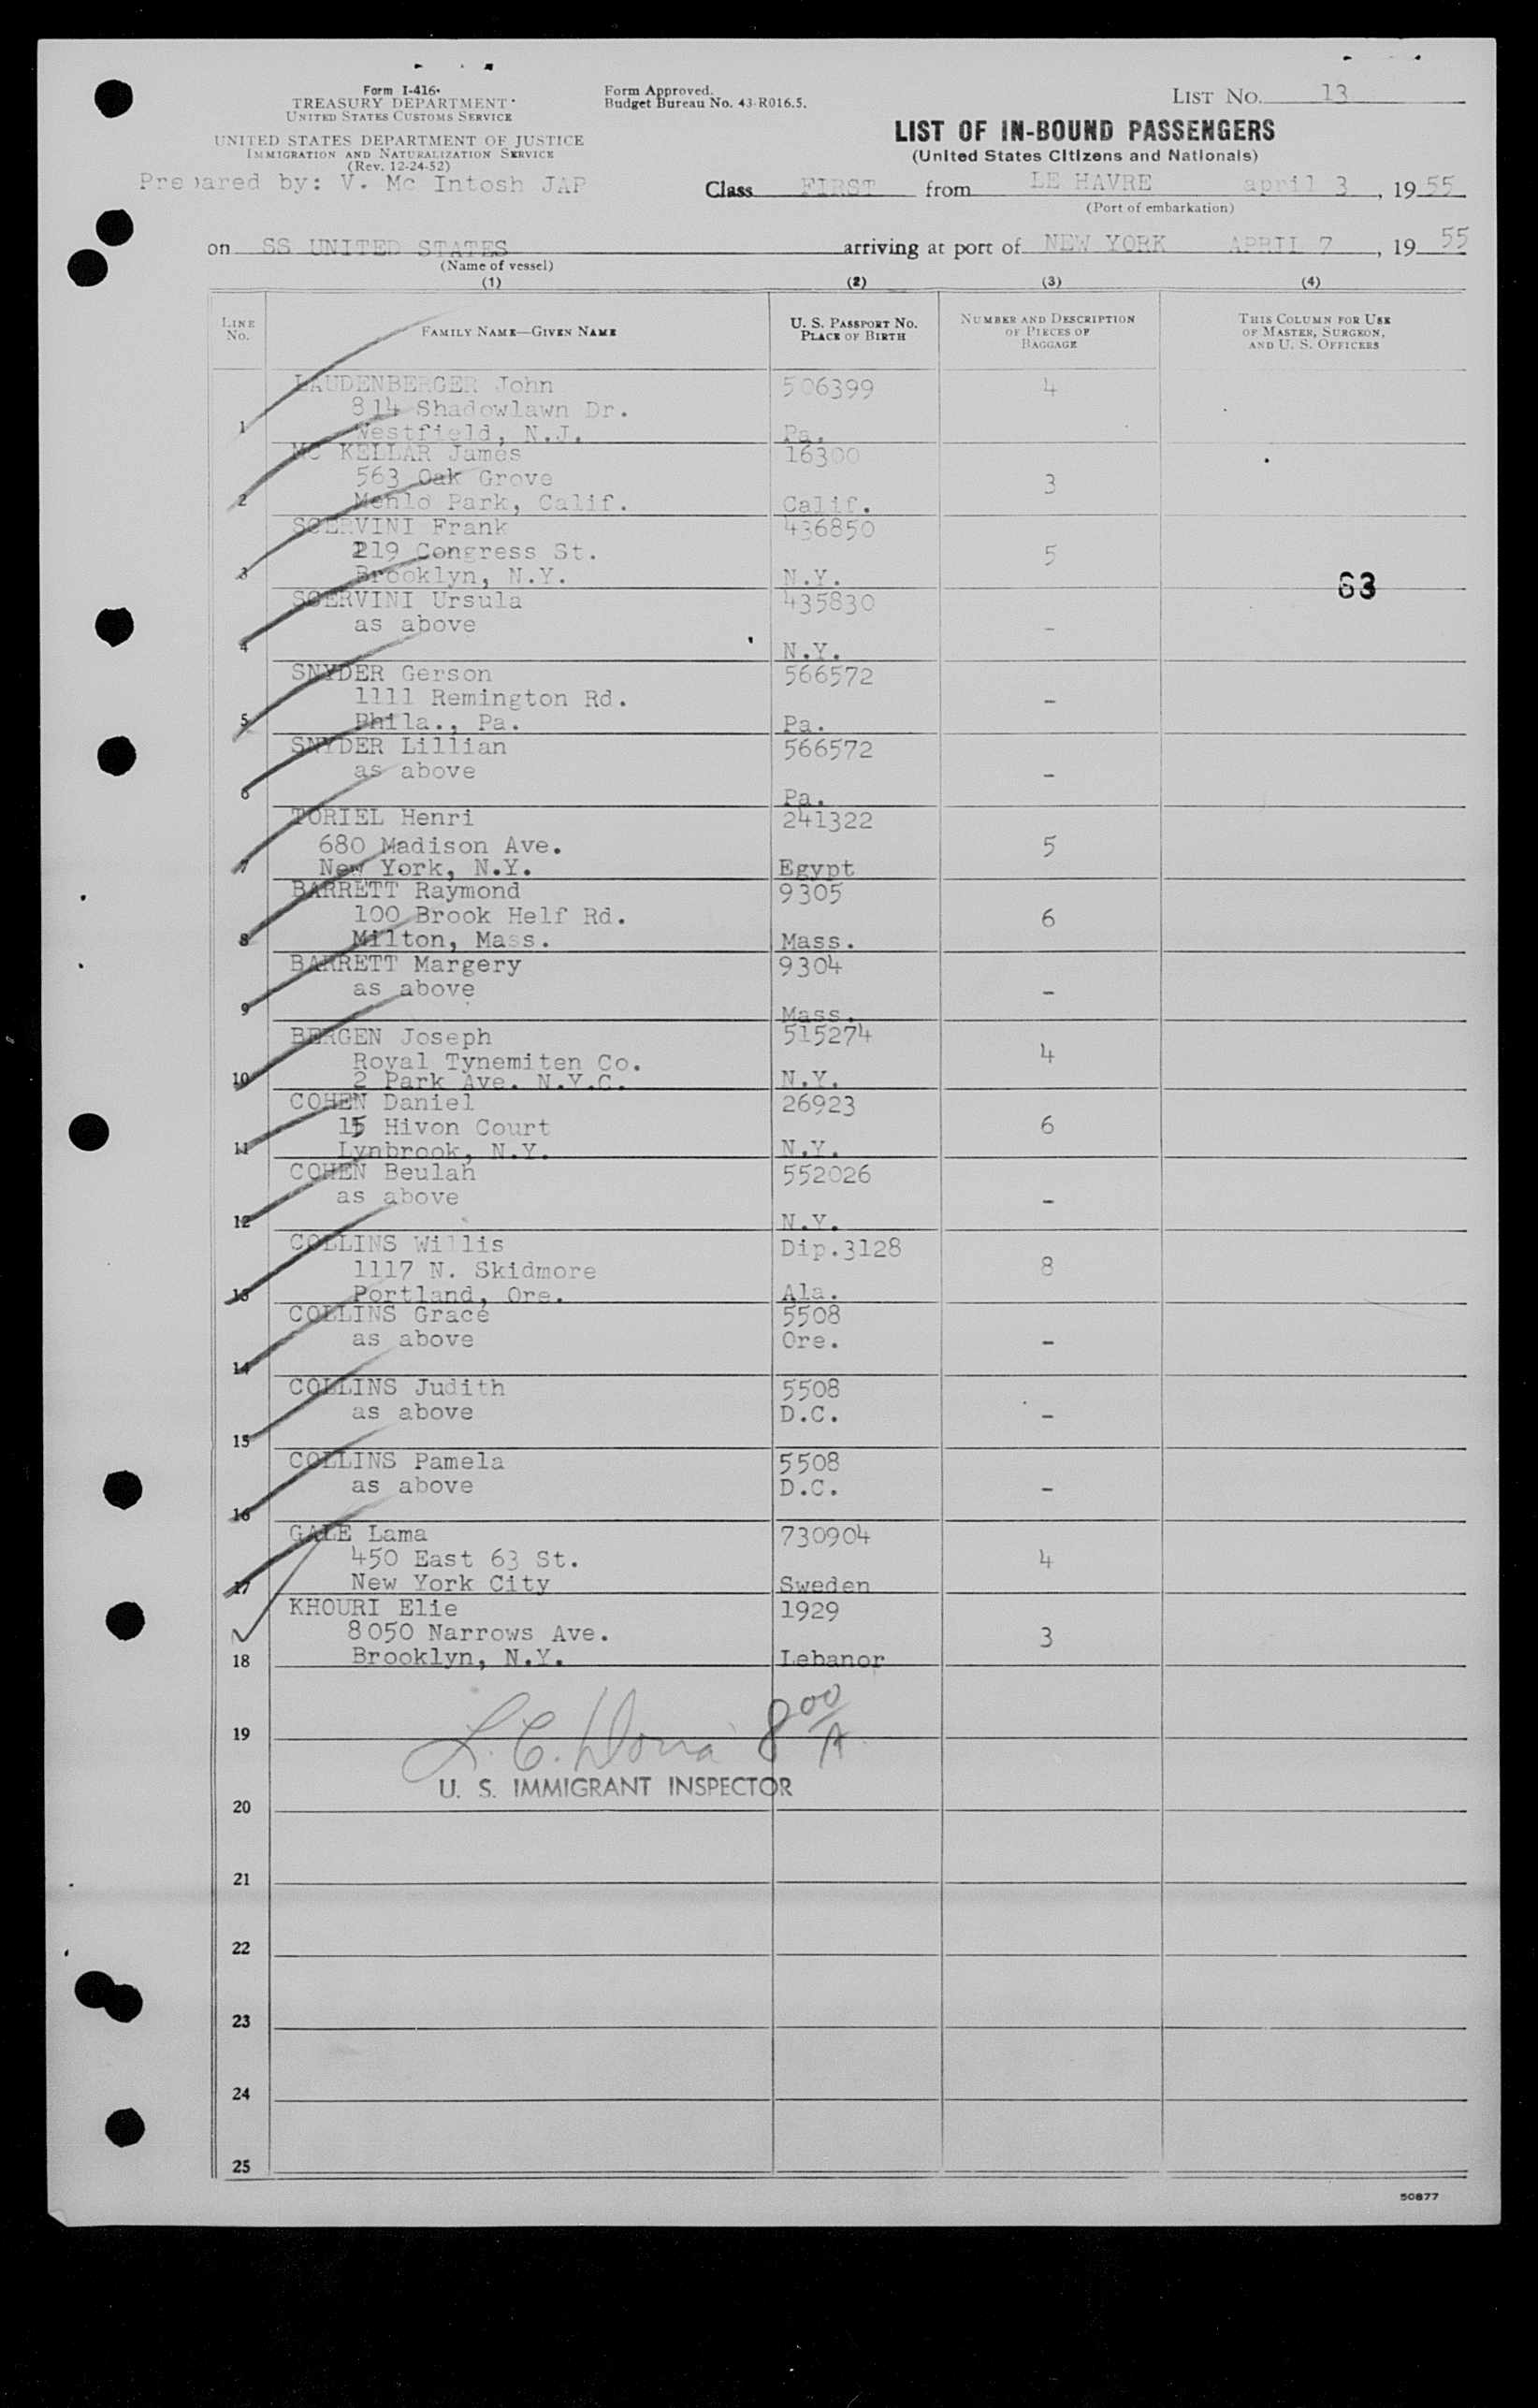 Form I-416
TREASURY DEPARTMENT
UNITED STATES CUSTOMS SERVICE
UNITED STATES DEPARTMENT OF JUSTICE
IMMIGRATION AND NATURALIZATION SERVICE
(Rev. 12-24-52)
Prepared by: V. Mc Intosh JAP
Form Approved.
Budget Bureau No. 43-R016.5.
LIST NO. 13
LIST OF IN-BOUND PASSENGERS
(United States Citizens and Nationals)
Class FIRST from LE HAVRE april 3, 1955
(Port of embarkation)
on SS UNITED STATES arriving at port of NEW YORK APRIL 7, 1955
(Name of vessel)
(1) (2) (3) (4)
LINE No. FAMILY NAME—GIVEN NAME U. S. PASSPORT NO. PLACE OF BIRTH NUMBER AND DESCRIPTION OF PIECES OF BAGGAGE THIS COLUMN FOR USE OF MASTER, SURGEON, AND U. S. OFFICERS
LAUDENBERGER John 506399 4
814 Shadowlawn Dr.
1 Westfield, N.J. Pa.
MC KELLAR James 16300
563 Oak Grove 3
2 Menlo Park, Calif. Calif.
SCERVINI Frank 436850
219 Congress St. 5
3 Brooklyn, N.Y. N.Y.
63
SCERVINI Ursula 435830
as above -
4 N.Y.
SNYDER Gerson 566572
1111 Remington Rd. -
5 Phila., Pa. Pa.
SNYDER Lillian 566572
as above -
6 Pa.
TORIEL Henri 241322
680 Madison Ave. 5
7 New York, N.Y. Egypt
BARRETT Raymond 9305
100 Brook Helf Rd. 6
8 Milton, Mass. Mass.
BARRETT Margery 9304
as above -
9 Mass.
BERGEN Joseph 515274
Royal Tynemiten Co. 4
10 2 Park Ave. N.Y.C. N.Y.
COHEN Daniel 26923
15 Hivon Court 6
11 Lynbrook, N.Y. N.Y.
COHEN Beulah 552026
as above -
12 N.Y.
COLLINS Willis Dip.3128
1117 N. Skidmore 8
13 Portland, Ore. Ala.
COLLINS Grace 5508
as above Ore. -
14
COLLINS Judith 5508
as above D.C. -
15
COLLINS Pamela 5508
as above D.C. -
16
GALE Lama 730904
450 East 63 St. 4
17 New York City Sweden
KHOURI Elie 1929
8050 Narrows Ave. 3
18 Brooklyn, N.Y. Lebanor
19 L. C. 8 00/A
U. S. IMMIGRANT INSPECTOR
20
21
22
23
24
25
50877